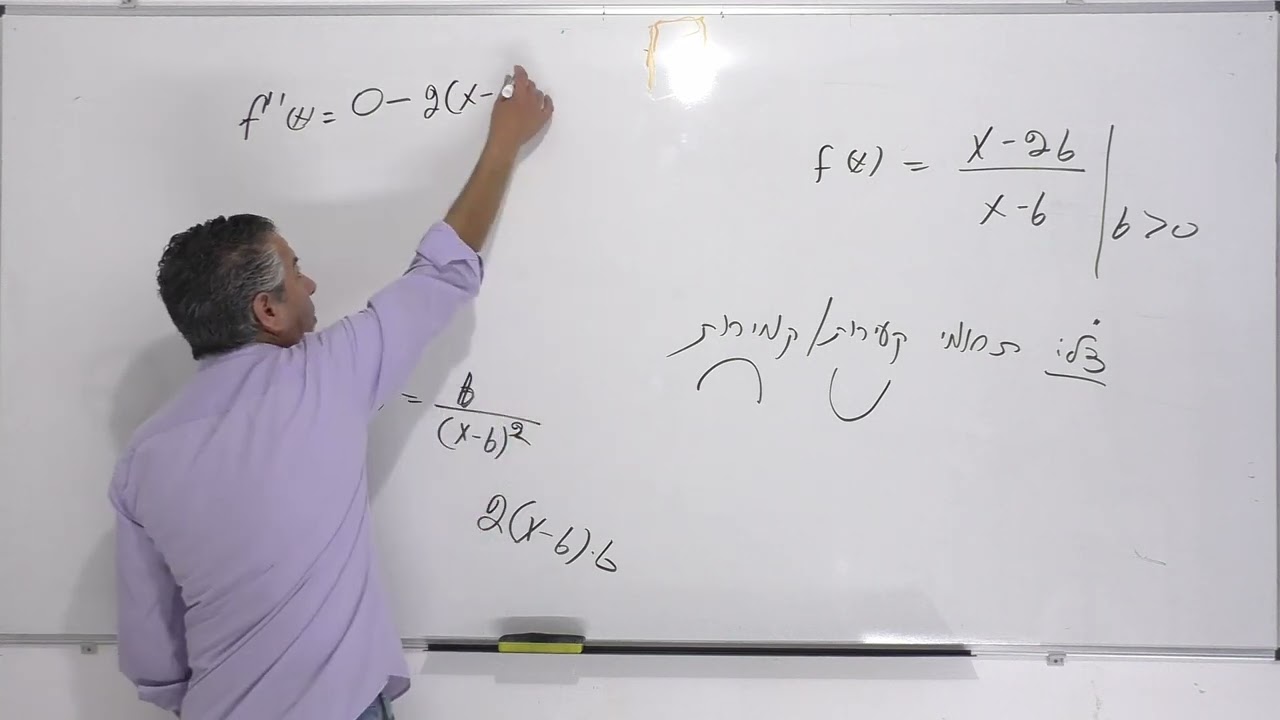 f''(x) = 0 - 2(x-
f(x) = \frac{x-2b}{x-b} | b > 0
צ"ל: תחומי קעירות/קמירות
= \frac{b}{(x-b)^2}
2(x-b)·b